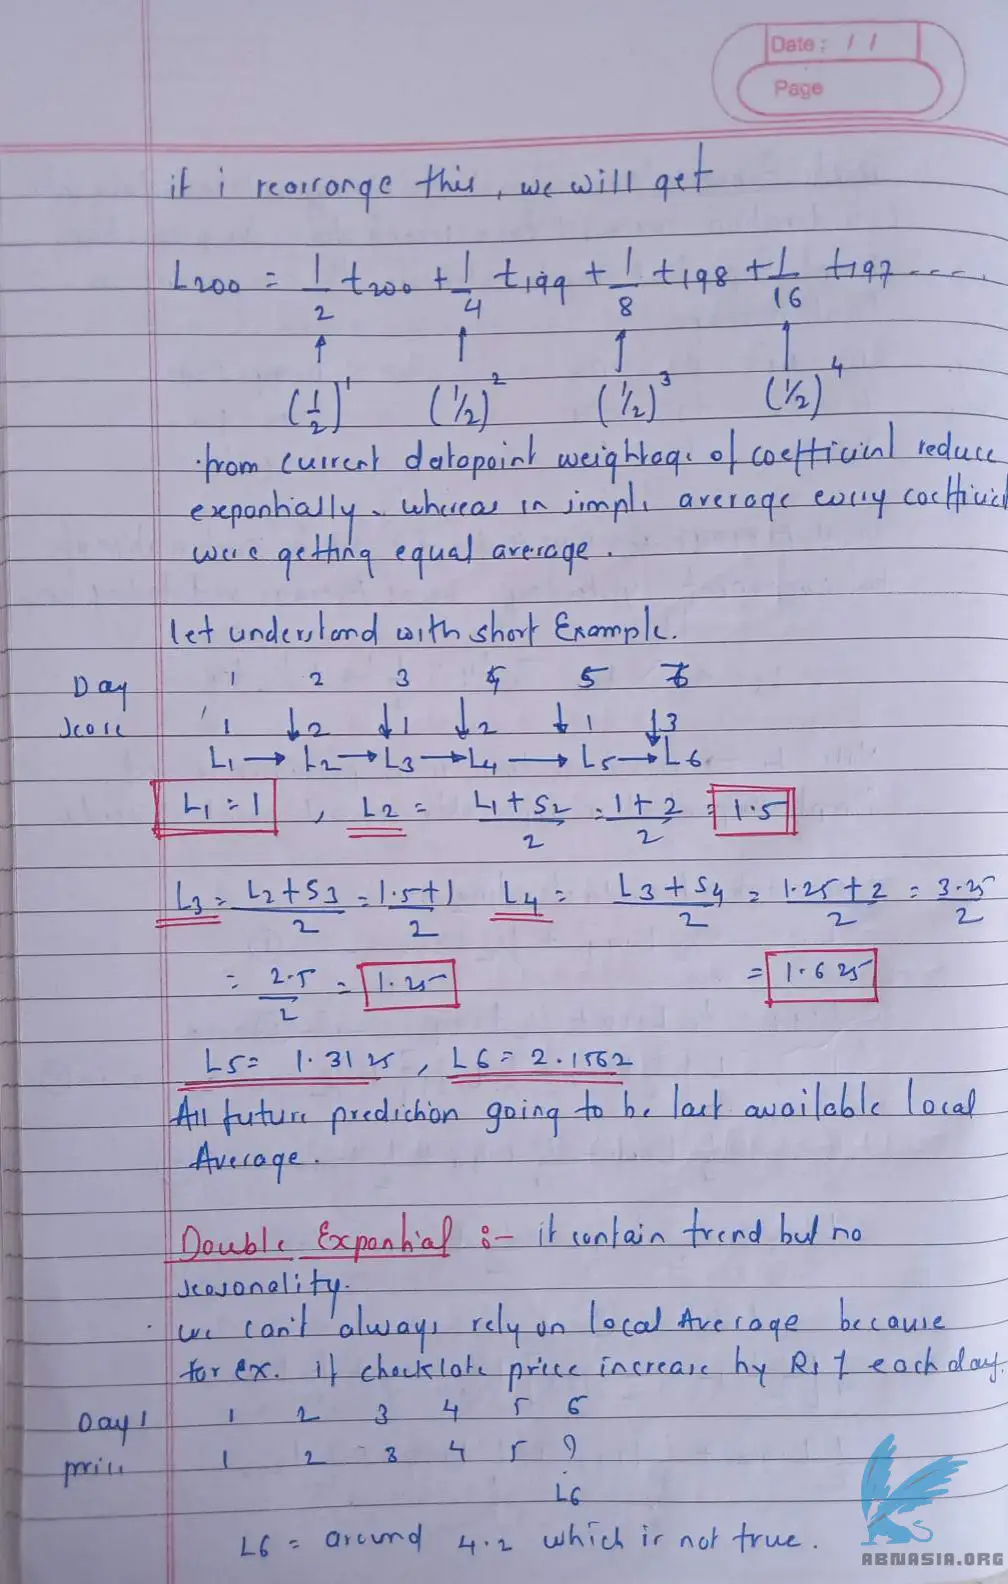 Date : / /
Page
if i rearrange this, we will get
L200 = 1/2 t200 + 1/4 t199 + 1/8 t198 + 1/16 t197 ....
(1/2)^1 (1/2)^2 (1/2)^3 (1/2)^4
from current datapoint weightage of coefficient reduce
exponhially. whereas in simple average every coefficient
were getting equal average.
let understand with short Example.
Day 1 2 3 4 5 6
score 1 ↓2 ↓1 ↓2 ↓1 ↓3
L1 → L2 → L3 → L4 → L5 → L6
L1 = 1 , L2 = L1 + S2 / 2 = 1 + 2 / 2 = 1.5
L3 = L2 + S3 / 2 = 1.5 + 1 / 2 L4 = L3 + S4 / 2 = 1.25 + 2 / 2 = 3.25 / 2
= 2.5 / 2 = 1.25 = 1.625
L5 = 1.3125 , L6 = 2.1562
All future prediction going to be last available local
Average.
Double Exponhial :- it contain trend but no
seasonality.
we can't always rely on local Average because
for ex. if chocklate price increase by Rs 1 each day.
Day 1 2 3 4 5 6
price 1 2 3 4 5 ?
L6
L6 = around 4.2 which is not true.
ABNASIA.ORG